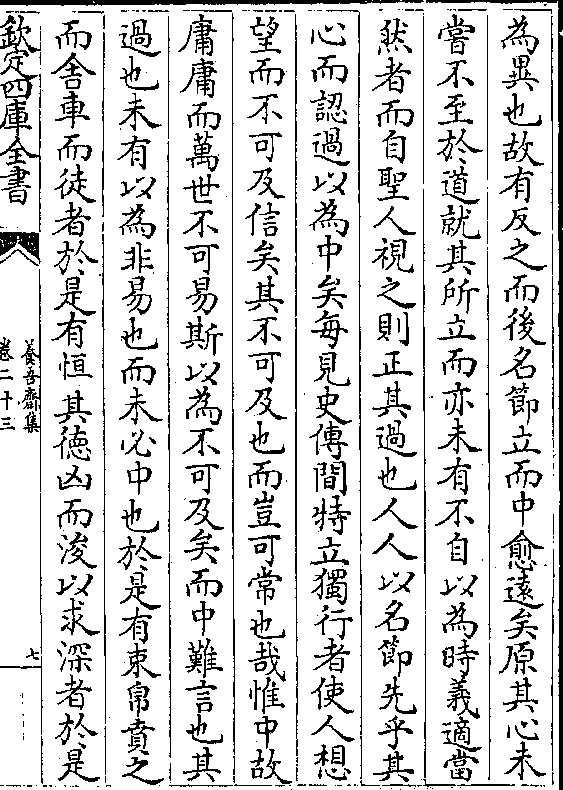 為異也故有反之而後名節立而中愈逺矣原其心未
嘗不至於道就其所立而亦未有不自以為時義適當
然者而自聖人視之則正其過也人人以名節先乎其
心而認過以為中矣每見史傳間特立獨行者使人想
望而不可及信矣其不可及也而豈可常也哉惟中故
庸庸而萬世不可易斯以為不可及矣而中難言也其
過也未有以為非易也而未必中也於是有束帛賁之
而舍車而徒者於是有恒其徳凶而浚以求深者於是
欽定四庫全書
養吾齋集
卷二十三
七